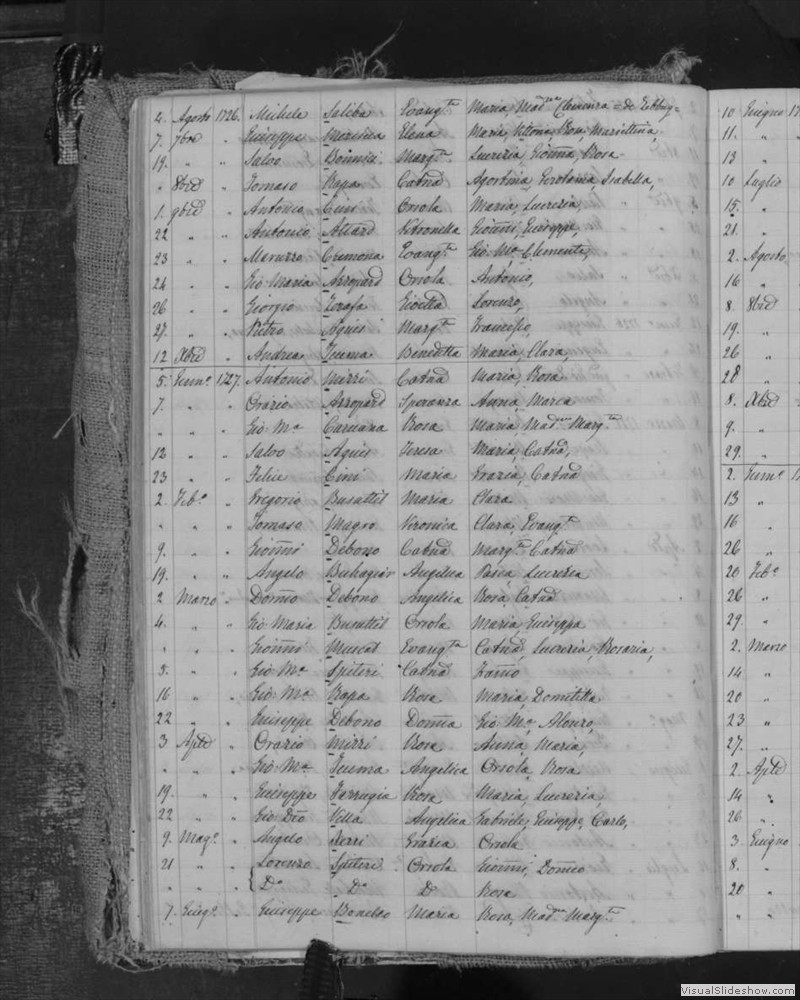 4. Agosto 1726. Michele Saliba Evang.ta Maria, Mad.na Clemenza = de Zebbug =
7. 7bre " Giuseppe Messina Elena Maria, Vittoria, Rosa, Mariettina,
19. " " Salvo Bonnici Marg.ta Lucrezia, Gionna, Rosa
" 8bre " Tomaso Rapa Catnd Agostina, Geronima, Isabella,
1. 9bre " Antonio Cini Orsola Maria, Lucrezia,
22 " " Antonio Attard Petronella Gionni, Giuseppa,
23 " " Cremona Evang.ta Gio M.a Clemente,
24 " " Gio Maria Azzopard Orsola Antonio,
26 " " Giorgio Zerafa Gioetta Lorenzo,
27. " " Pietro Aquis Marg.ta
12 Xbre " Andrea Zuma Benedetta Maria, Clara,
5. Genn.o 1727. Antonio Mizzi Catnd Maria, Rosa
7. " " Orazio Azzopard Speranza Anna, Marca
" " " Gio M.a Caruana Rosa Maria Mad.na Marg.ta
12 " " Salvo Aquis Teresa Maria, Catnd,
23 " " Felice Cini Maria Grazia, Catnd
2. Feb.o " Gregorio Busuttil Maria Clara
" " " Tomaso Mugro Vironica Clara, Evang.ta
9. " " Gionni Debono Catnd Marg.ta Catnd
19. " " Angelo Buhagiar Angelica Pasca Lucrezia
2 Marzo " Dommo Debono Angelica Rosa, Catnd
4. " " Gio Maria Busuttil Orsola Maria, Giuseppa
" " " Gionni Muscat Evang.ta Catnd, Lucrezia, Rosaria,
3. " " Gio M.a Spiteri Catnd
16 " " Gio M.a Rapa Rosa Maria, Domitilla
22 " " Giuseppe Debono Domma Gio M.a Alonzo,
3 Aple " Orazio Mizzi Rosa Anna, Maria,
" " " Gio M.a Zuma Angelica Orsola, Rosa
19. " " Giuseppe Farrugia Rosa Maria, Lucrezia,
22 " " Gio Dio Villa Angelica Gabriele, Giuseppe, Carlo,
9. Mag.o " Angelo Xerri Grazia Orsola
21 " " Lorenzo Spiteri Orsola Gionni, Domco
" " " D.o D.o D.o Rosa
7. Giug.o " Giuseppe Maria Rosa, Mad.na Marg.ta
10 Giugno 17
11. " "
13 "
10 Luglio
15. "
21. "
2. Agosto,
16 "
8. 8bre
19. "
26 "
28 "
8. Xbre
9. "
29. "
2. Genn.o 17
13 "
16 "
26 "
20 Feb.o
26 "
29. "
2. Marzo
14 "
20 "
23 "
27. "
2. Aple
14 "
26 "
3. Giugno
8. "
20 "
" "
VisualSlideshow.com